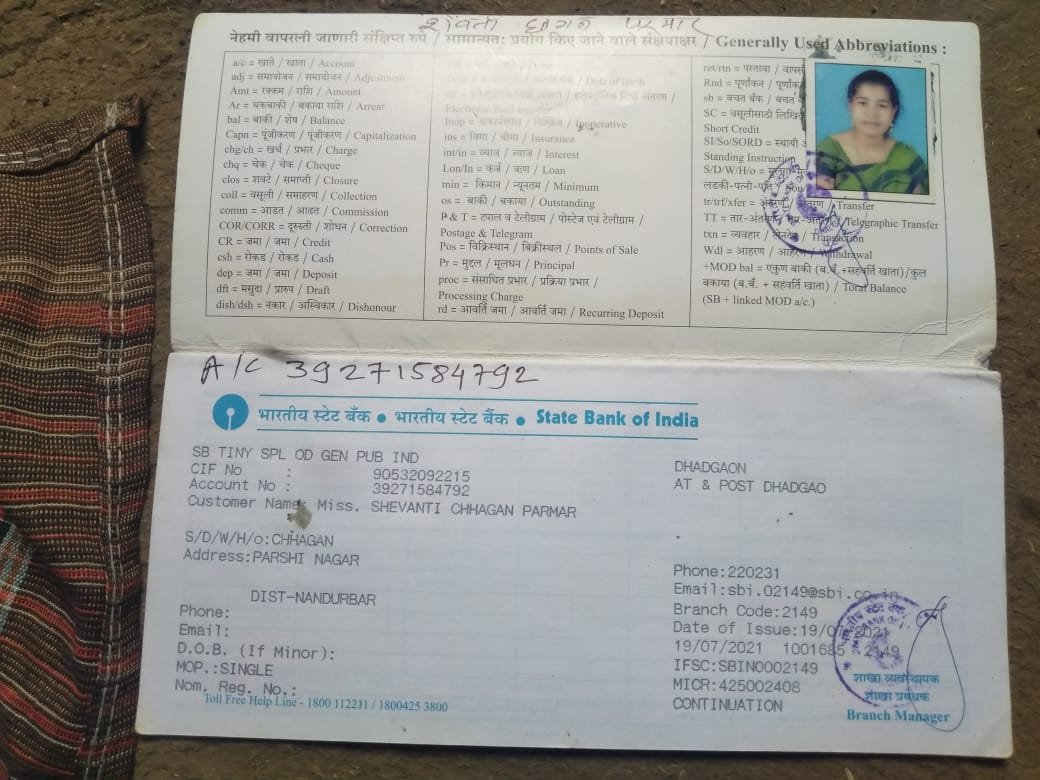 शेवंती छगन परमार
नेहमी वापरली जाणारी संक्षिप्त रुपे / सामान्यत: प्रयोग किए जाने वाले संक्षेपाक्षर / Generally Used Abbreviations :
a/c = खाते / खाता / Account
adj = समायोजन / समायोजन / Adjustment
Amt = रक्कम / राशि / Amount
Ar = थकबाकी / बकाया राशि / Arrear
bal = बाकी / शेष / Balance
Capn = पूंजीकरण / पूंजीकरण / Capitalization
chg/ch = खर्च / प्रभार / Charge
chq = चेक / चेक / Cheque
clos = शवटे / समाप्ती / Closure
coll = वसूली / समाहरण / Collection
comm = आडत / आढत / Commission
COR/CORR = दुरुस्ती / शोधन / Correction
CR = जमा / जमा / Credit
csh = रोकड / रोकड / Cash
dep = जमा / जमा / Deposit
dft = मसुदा / प्रारुप / Draft
dish/dsh = नकार / अस्विकार / Dishonour
/ Date of Birth
Electronic fund transfer
Inop = / Inoperative
ins = विमा / बीमा / Insurance
int/in = व्याज / ब्याज / Interest
Lon/In = कर्ज / ऋण / Loan
min = किमान / न्यूनतम / Minimum
os = बाकी / बकाया / Outstanding
P & T = टपाल व टेलीग्राम / पोस्टेज एवं टेलीग्राम /
Postage & Telegram
Pos = विक्रिस्थान / बिक्रीस्थल / Points of Sale
Pr = मुद्दल / मूलधन / Principal
proc = संसाधित प्रभार / प्रक्रिया प्रभार /
Processing Charge
rd = आवर्ति जमा / आवर्ति जमा / Recurring Deposit
ret/rtn = परतावा / वापसी
Rnd = पूर्णांकन / पूर्णांक
sb = बचत बँक / बचत
SC = वसूलीसाठी लिखि
Short Credit
SI/So/SORD = स्थायी
Standing Instruction
S/D/W/H/o =
लडकी-पत्नी-पति
tr/trf/xfer = अंतरण / अंतरण / Transfer
TT = तार-अंतरण / तार-अंतरण / Telegraphic Transfer
txn = व्यवहार / लेनदेन / Transaction
Wdl = आहरण / आहरण / Withdrawal
+MOD bal = एकुण बाकी (ब.बँ.+सहवर्ति खाता)/कुल
बकाया (ब.बैं. + सहवर्ति खाता) / Total Balance
(SB + linked MOD a/c.)
A/C 39271584792
भारतीय स्टेट बँक ● भारतीय स्टेट बैंक ● State Bank of India
SB TINY SPL OD GEN PUB IND
CIF No : 90532092215
Account No : 39271584792
Customer Name: Miss. SHEVANTI CHHAGAN PARMAR
S/D/W/H/o:CHHAGAN
Address:PARSHI NAGAR
DIST-NANDURBAR
Phone:
Email:
D.O.B. (If Minor):
MOP.:SINGLE
Nom. Reg. No.:
Toll Free Help Line - 1800 112211 / 1800425 3800
DHADGAON
AT & POST DHADGAO
Phone:220231
Email:sbi.02149@sbi.co.in
Branch Code:2149
Date of Issue:19/07/2021
19/07/2021 1001685 2149
IFSC:SBIN0002149
MICR:425002408
CONTINUATION
शाखा व्यवस्थापक
शाखा प्रबंधक
Branch Manager